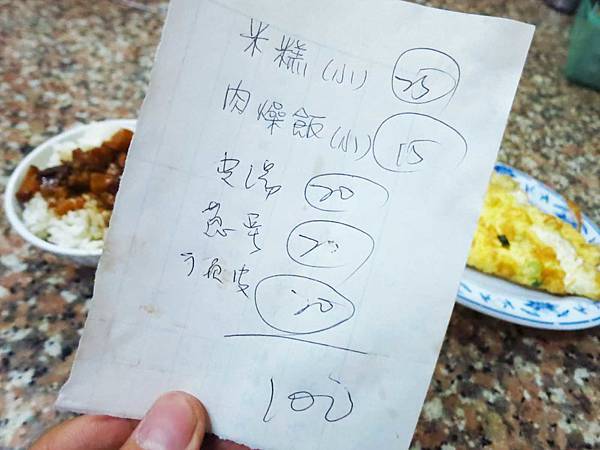 米糕(小) 25
肉燥飯(小) 15
皮湯 20
蔥蛋 20
魚皮
100